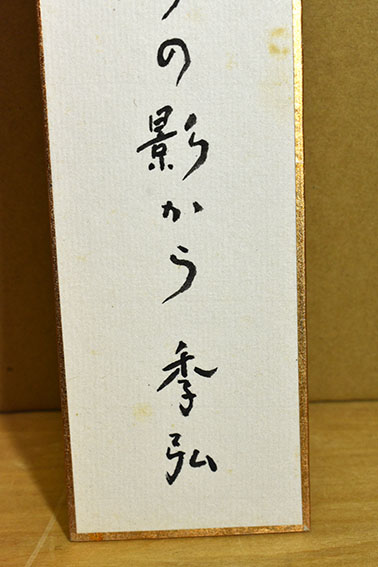 の影から 季弘